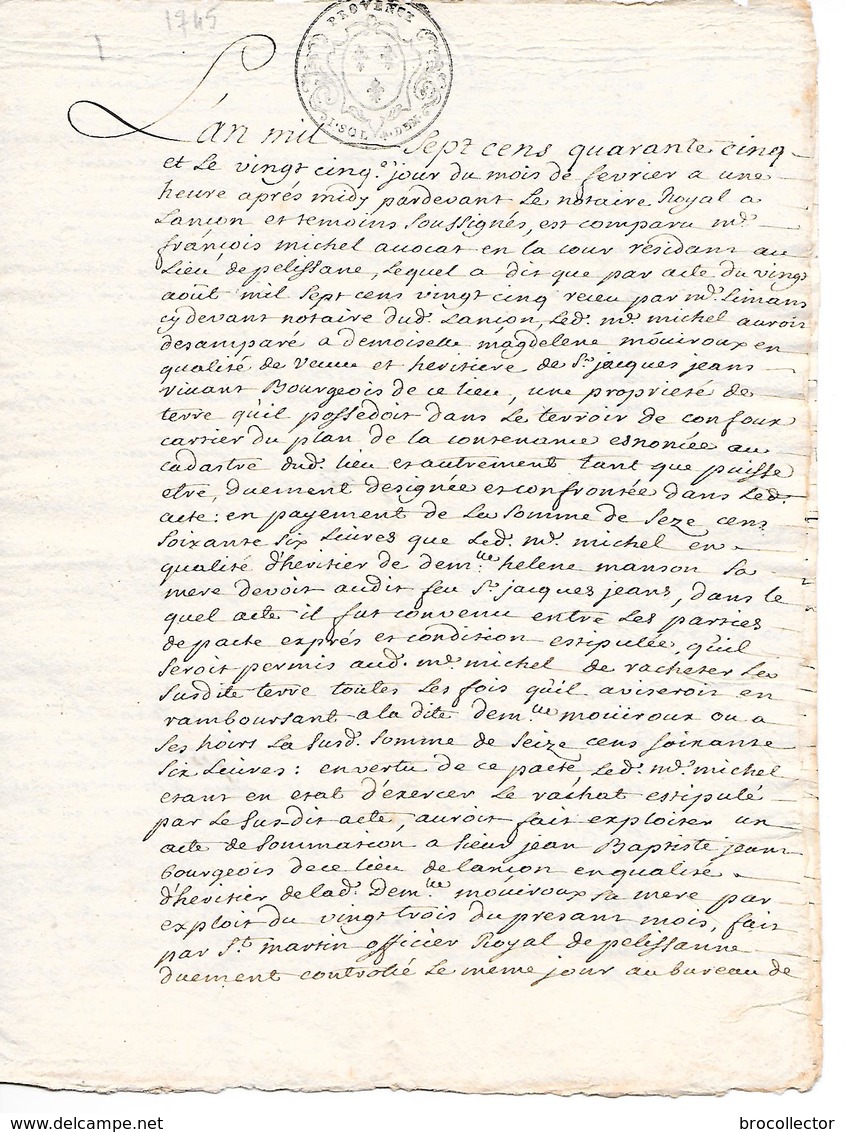 1745
PROVENCE
1. SOL. 4. DEN.
L'an mil Sept cens quarante cinq
et Le vingt cinq.e Jour du mois de fevrier a une
heure aprés midy pardevant Le notaire Royal a
Lançon et temoins soussignés, est comparu m.e
françois michel avocat en la cour résidant au
Lieu de pelissane, Lequel a dit que par acte du vingt
août mil Sept cens vingt cinq receu par m.e Limans
cy devant notaire dud. Lançon, Led. m.e michel auroit
desamparé a demoiselle magdelene moüiroux en
qualité de veuve et heritiere de S.r jacques jeans
vivant Bourgeois de ce lieu, une proprieté de
terre qu'il possedoit dans Le terroir de confoux
cartier du plan de la contenance enoncée au
cadastre dud. lieu et autrement tant que puisse
etre, duement designée et confrontée dans Led.
acte: en payement de La somme de seze cens
soixante six Livres que Led. m.e michel en
qualité d'heritier de dem.lle helene manson sa
mere devoit audit feu S.r jacques jeans, dans le
quel acte il fut convenu entre Les parties
de pacte exprés et condition estipulée, qu'il
seroit permis aud. m.e michel de racheter La
susdite terre toutes Les fois qu'il aviseroit en
remboursant a la dite dem.lle moüiroux ou a
ses hoirs La susd. somme de seize cens soixante
six Livres: en vertu de ce pacte, Led. m.e michel
etant en etat d'exercer Le rachat estipulé
par Le sus-dit acte, auroit fait exploiter un
acte de sommation a sieur jean Baptiste jeans
bourgeois de ce lieu de lançon en qualité
d'heritier de lad. Dem.lle moüiroux sa mere par
exploit du vingt trois du presant mois, fait
par S.t martin officier Royal de pelissanne
duement controllé Le meme jour au bureau de
www.delcampe.net
brocollector